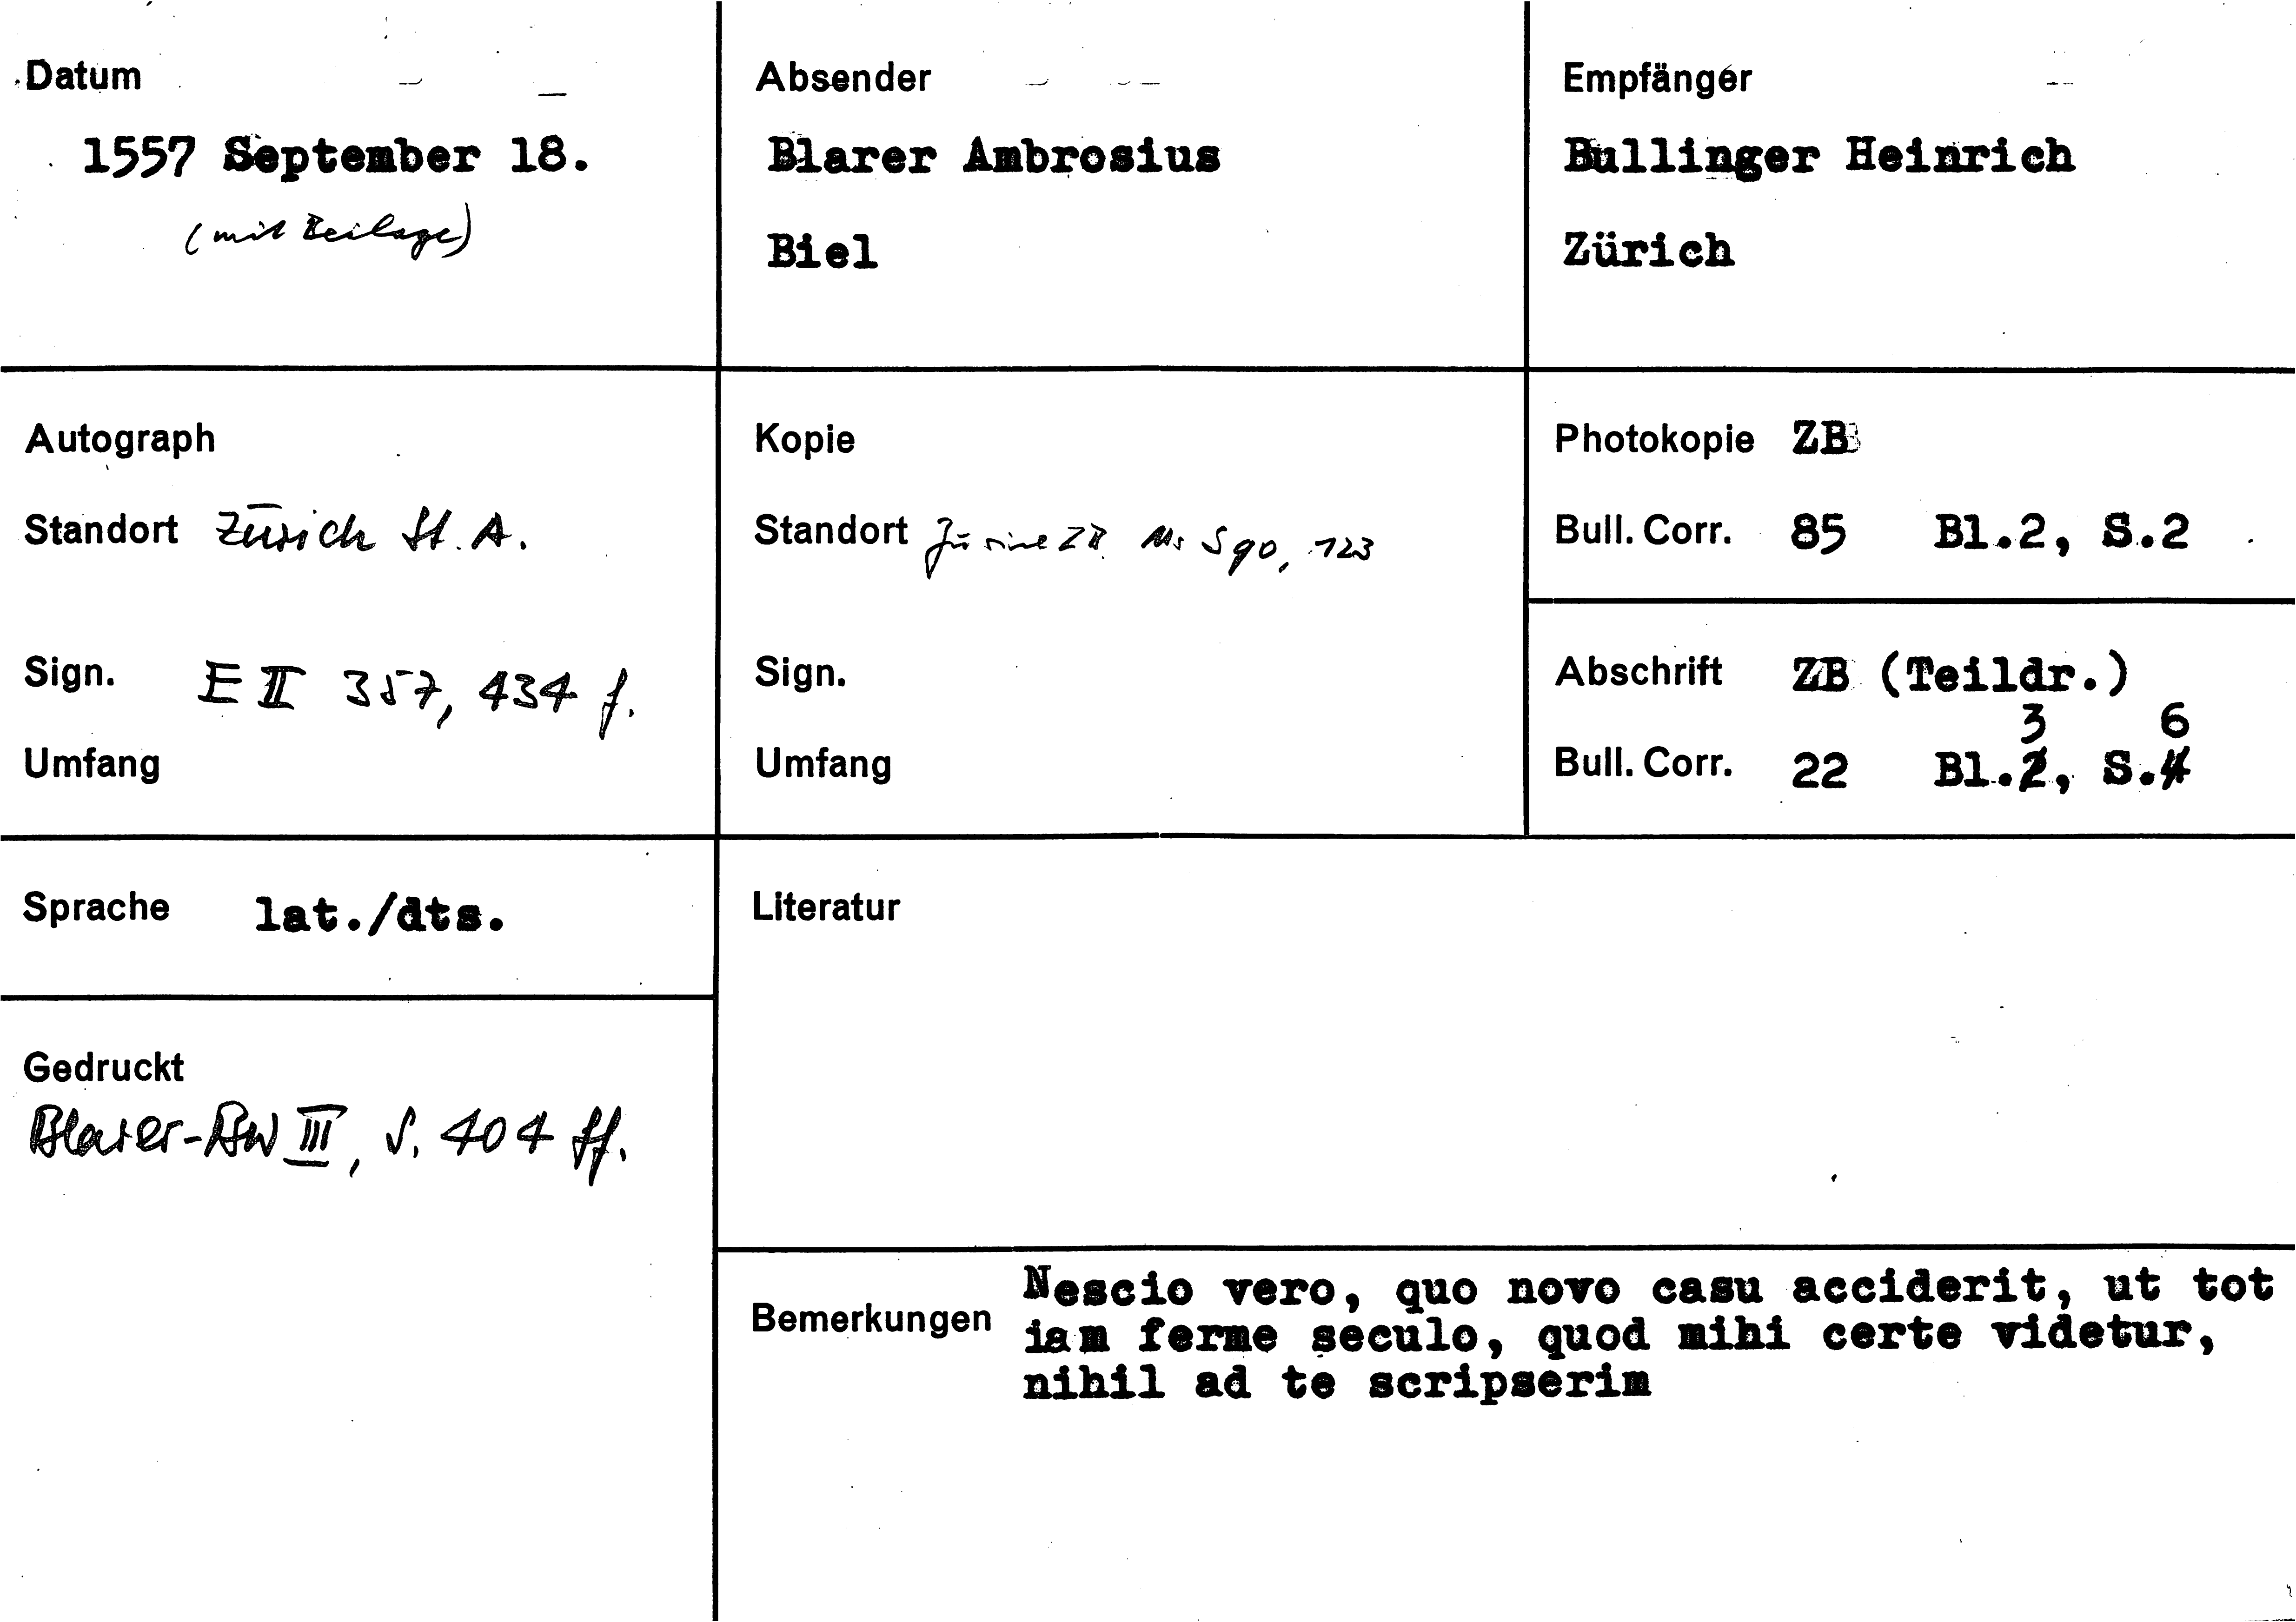 Datum
1557 September 18.
(mit Beilage)
Absender
Blarer Ambrosius
Biel
Empfänger
Bullinger Heinrich
Zürich
Autograph
Standort Zürich St. A.
Sign. E II 357, 434 f.
Umfang
Kopie
Standort Zürich ZB Ms S 90, 123
Sign.
Umfang
Photokopie ZB
Bull. Corr. 85 Bl.2, S.2
Abschrift ZB (Teildr.)
3 6
Bull. Corr. 22 Bl.2, S.4
Sprache lat./dts.
Gedruckt
Blarer-BW III, S. 404 ff.
Literatur
Bemerkungen
Nescio vero, quo novo casu acciderit, ut tot
iam ferme seculo, quod mihi certe videtur,
nihil ad te scripserim